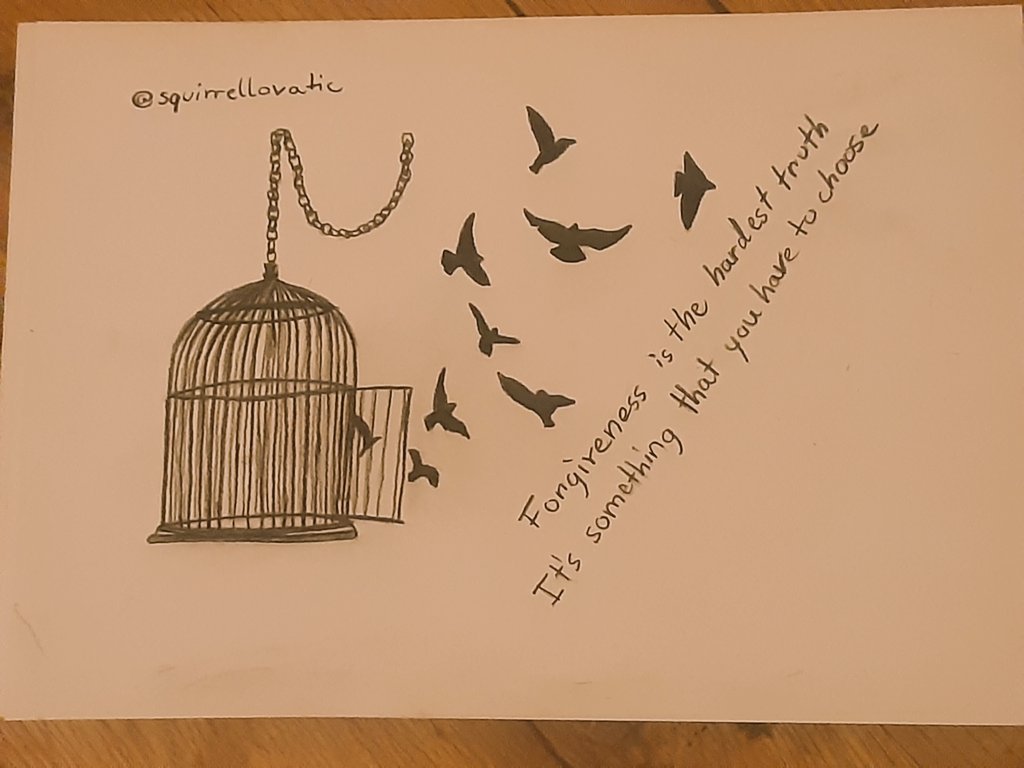 @squirrellovatic
Forgiveness is the hardest truth
It's something that you have to choose